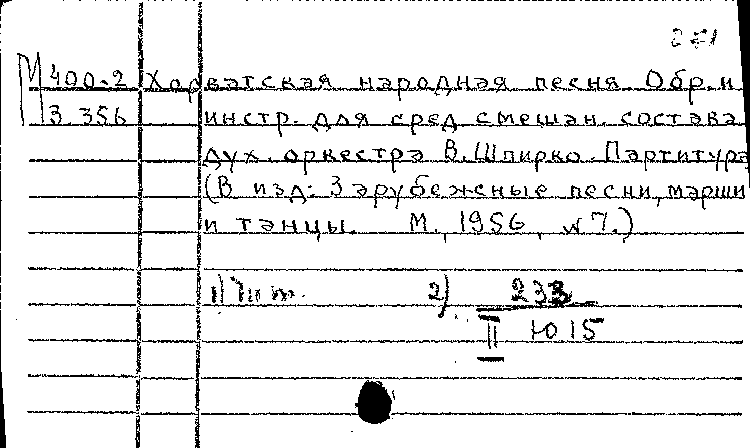 М 400-2 Хорватская народная песня. Обр. и
3.356 инстр. для сред. смешан. состава
дух. оркестра В. Шпирко. Партитура
(В изд: Зарубежные песни, марши
и танцы. М., 1956, №7.)
1) 2) 233
II 1015